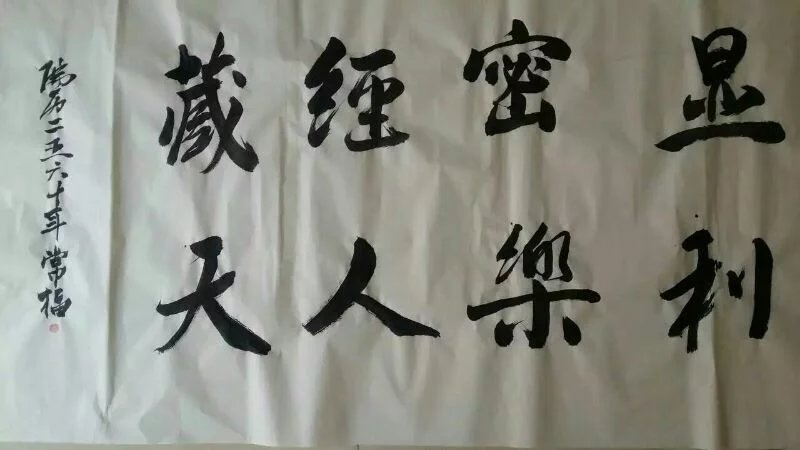 显密經藏
利樂人天
二五六十年 常福